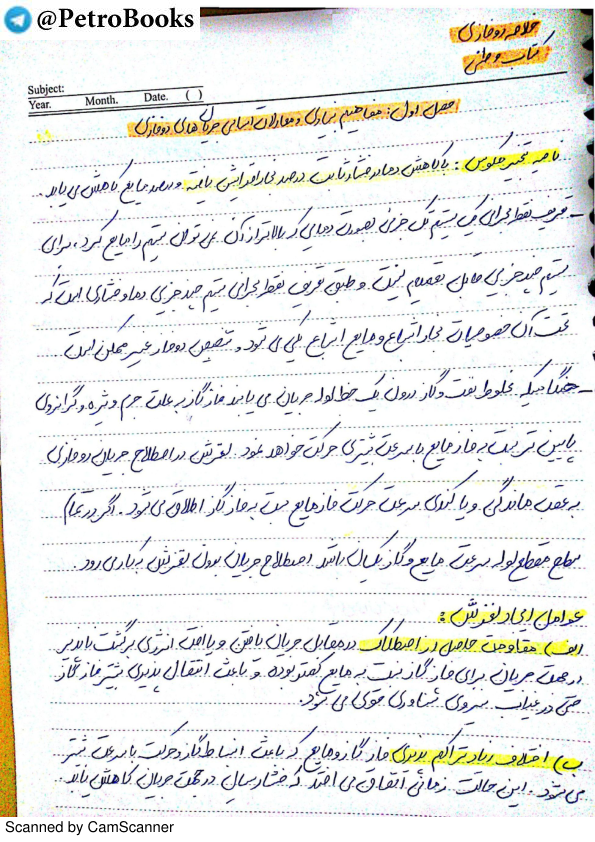 @PetroBooks
خلاصه دوفازی
کتاب وطنی
Subject:
Year. Month. Date. ( )
فصل اول: مفاهیم بنیادی و معادلات اساسی جریان های دوفازی
ناحیه تغییر معکوس: با کاهش دما در فشار ثابت درصد بخار افزایش یافته و درصد مایع کاهش می یابد.
- تعریف نقطه بحرانی سیستم تک جزئی بصورت دمایی که بالاتر از آن نمی توان سیستم را مایع کرد، برای
سیستم چندجزیی قابل تعمیم نیست و طبق تعریف نقطه بحرانی سیستم چندجزیی دما و فشاری است که
تحت آن خصوصیات بخار اشباع و مایع اشباع یکی می شود و تشخیص دو فاز غیر ممکن است
- هنگامیکه مخلوط نفت و گاز درون یک خط لوله جریان می یابد فاز گاز به علت جرم ویژه و گرانروی
پایین تر نسبت به فاز مایع با سرعت بیشتری حرکت خواهد نمود. لغزش در اصطلاح جریان دوفازی
به عقب ماندگی و یا کندی سرعت حرکت فاز مایع نسبت به فاز گاز اطلاق می شود. اگر در تمام
سطح مقطع لوله سرعت مایع و گاز یکسان باشد اصطلاح جریان بدون لغزش بکار می رود.
عوامل ایجاد لغزش:
الف) مقاومت حاصل از اصطکاک در مقابل جریان یافتن و یا افت انرژی برگشت ناپذیر
در جهت جریان برای فاز گاز نسبت به مایع کمتر بوده و باعث انتقال پذیری بیشتر فاز گاز
حتی در غیاب نیروی شناوری قوی می شود.
ب) اختلاف زیاد تراکم پذیری فاز گاز و مایع که باعث انبساط گاز و حرکت با سرعت بیشتر
می شود. این حالت زمانی اتفاق می افتد که فشار سیال در جهت جریان کاهش یابد.
Scanned by CamScanner